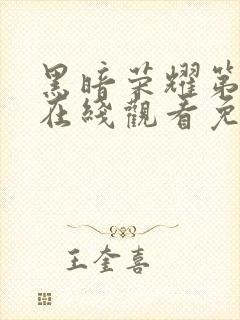 黑暗荣耀第
在綫觀看免
王奎喜